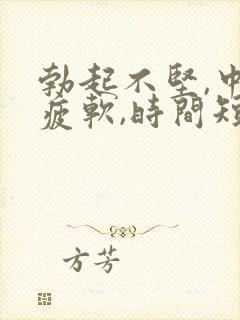 勃起不堅,中
疲軟,時間短
方芳